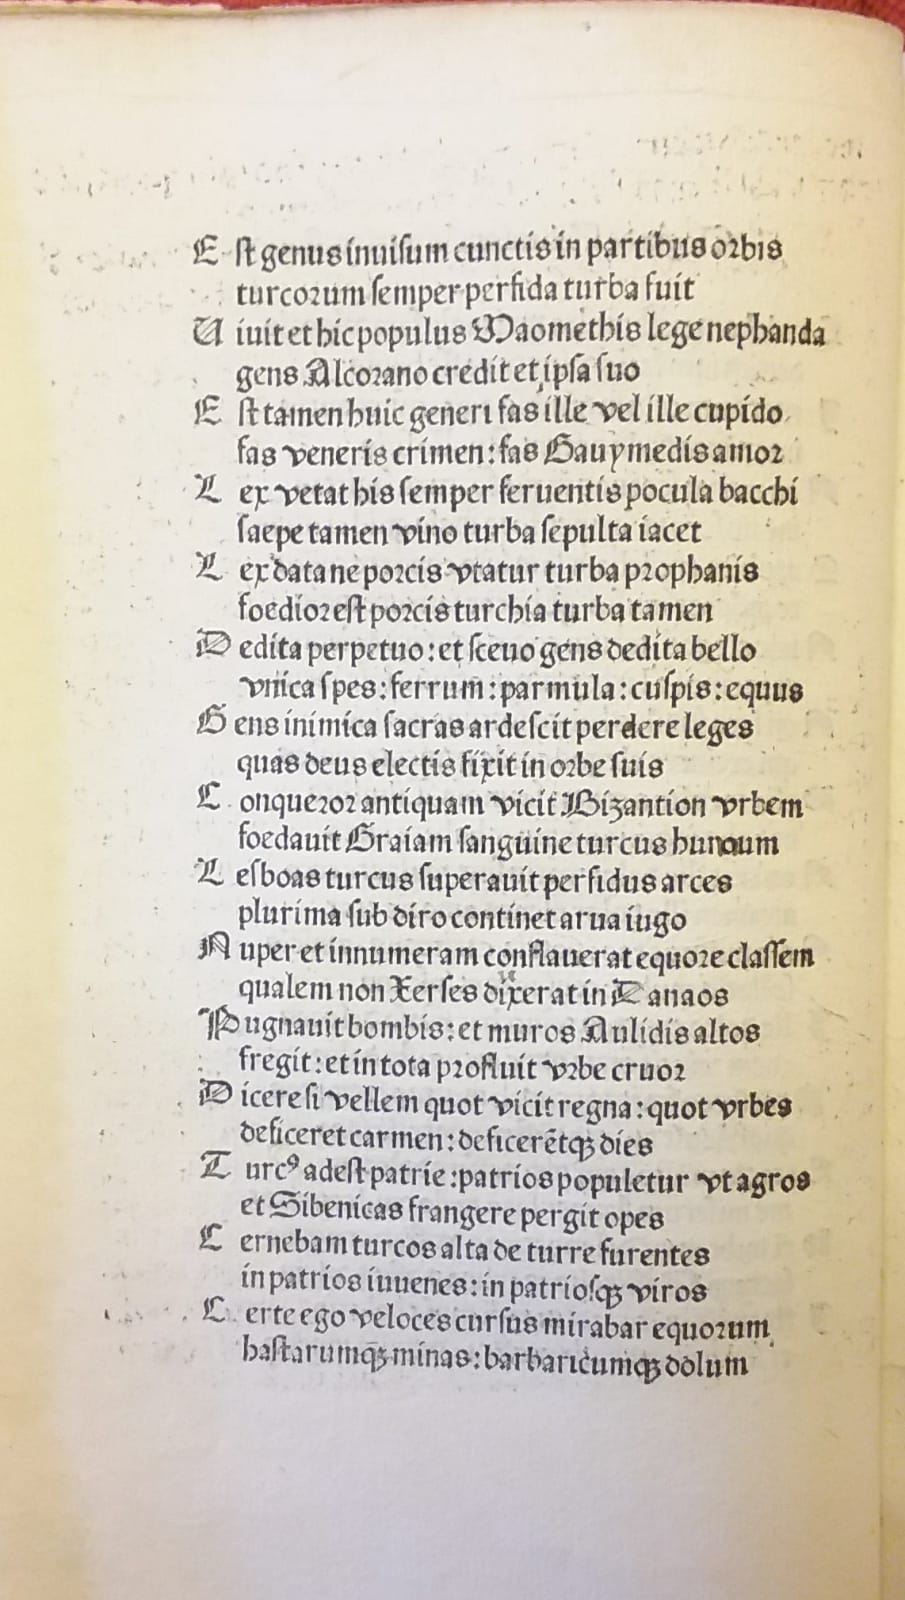 Est genus inuisum cunctis in partibus orbis
turcorum semper perfida turba fuit
Uiuit et hic populus Maomethis lege nephanda
gens Alcorano credit et ipsa suo
Est tamen huic generi fas ille vel ille cupido
fas veneris crimen: fas Gauymedis amor
Lex vetat his semper feruentis pocula bacchi
saepe tamen vino turba sepulta iacet
Lex data ne porcis vtatur turba prophanis
foedior est porcis turchia turba tamen
Dedita perpetuo: et sceuo gens dedita bello
vnica spes: ferrum: parmula: cuspis: equus
Gens inimica sacras ardescit perdere leges
quas deus electis fixit in orbe suis
Conqueror antiquam vicit Bizantion vrbem
foedauit Graiam sanguine turcus humum
Lesboas turcus superauit perfidus arces
plurima sub diro continet arua iugo
Nuper et innumeram conflauerat equore classem
qualem non Xerses dixerat in Danaos
Pugnauit bombis: et muros Aulidis altos
fregit: et in tota profluit vrbe cruor
Dicere si vellem quot vicit regna: quot vrbes
deficeret carmen: deficerẽtqꝫ dies
Turcꝰ adest patrie: patrios populetur vt agros
et Sibenicas frangere pergit opes
Cernebam turcos alta de turre furentes
in patrios iuuenes: in patriosqꝫ viros
Certe ego veloces cursus mirabar equorum
hastarumqꝫ minas: barbaricumqꝫ dolum